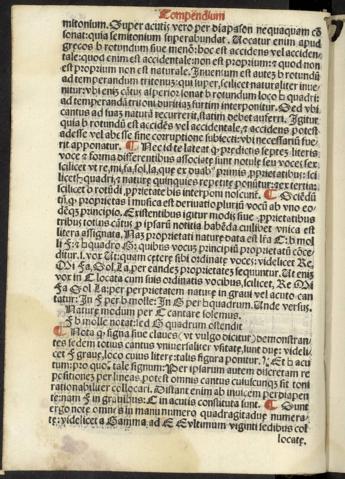 Compendium
mitonium. Super acutis vero per diapason nequaquam cō
sonat: quia semitonium superabundat. Uocatur enim apud
grecos b rotundum siue menō: hoc est accidens vel acciden-
tale: quod enim est accidentale: non est proprium: ⁊ quod non
est proprium non est naturale. Inuentum est autez b rotundū
ad temperandum tritonuz: qui super, scilicet naturaliter inue-
nitur: vbi enīȝ cātus asperior sonat b rotundum loco b quadri:
ad temperandū tritoni duritiaȝ furtim interponitur. Sed vbi
cantus ad suaȝ naturā recurrerit, statim debet auferri. Igitur
quia b rotundū est accidēs vel accidentale, ⁊ accidens potest
adesse vel abesse sine corruptione subiecti: vbi necessariū fue-
rit apponatur. ¶ Nec id te lateat ꝙ predictis septeȝ litteris
voce ⁊ forma differentibus associate sunt notule seu voces sex:
scilicet vt re, mi, fa, sol, la, que ex duabꝰ primis ꝓprietatibus: sci
licet ♮quadri, ⁊ nature quinquies repetite ponūtur: ⁊ ex tertia:
scilicet b rotūdi ꝓprietate bis interponi noscunt̄. ¶ Sciēdū
tn̄ ꝙ proprietas ī musica est deriuatio pluriū vocū ab vno eo-
dēqȝ principio. Existentibus igitur modis siue ꝓprietatibus
tribus totius cātus ꝑ ipsarū notitia habēda cuilibet vnica est
litera assignata. Nā proprietati nature data est lr̄a C: b mol
li F: ⁊ b quadro G: quibus vocuȝ principiū proprietatū cōce-
ditur. s. vox Ut: quam cetere sibi ordinate voces: videlicet Re,
Mi Fa, Sol, La, per easdez proprietates sequuntur. Ut enīȝ
vox in C locata cum suis ordinatis vocibus, scilicet, Re Mi
Fa Sol La: per perpietatem nature in graui vel acuto can
tatur: In F per b molle: In G per b quadrum. Unde versus.
Nature modum per C cantare solemus.
F b molle notat: sed G quadrum ostendit
¶ Nota ꝙ signa siue claues (vt vulgo dicitur) demonstran-
tes sedem totius cantus vniuersaliter vsitate, sunt due: videli-
cet F graue, loco cuius litere: talis figura ponitur. Et b acu
tum: pro quo, tale signum: Per ipsarum autem discretam re
petitioneȝ per lineas potest omnis cantus cuiuscunqȝ sit toni
rationabiliter collocari. Distant enim ab inuicem per diapen
te: nam F in grauibus: C in acutis constituta sunt. ¶ Sunt
ergo note omnis in manu numero quadragintadue numera-
te: videlicet a Gamma, ad E E vltimum viginti sedibus col
locate,